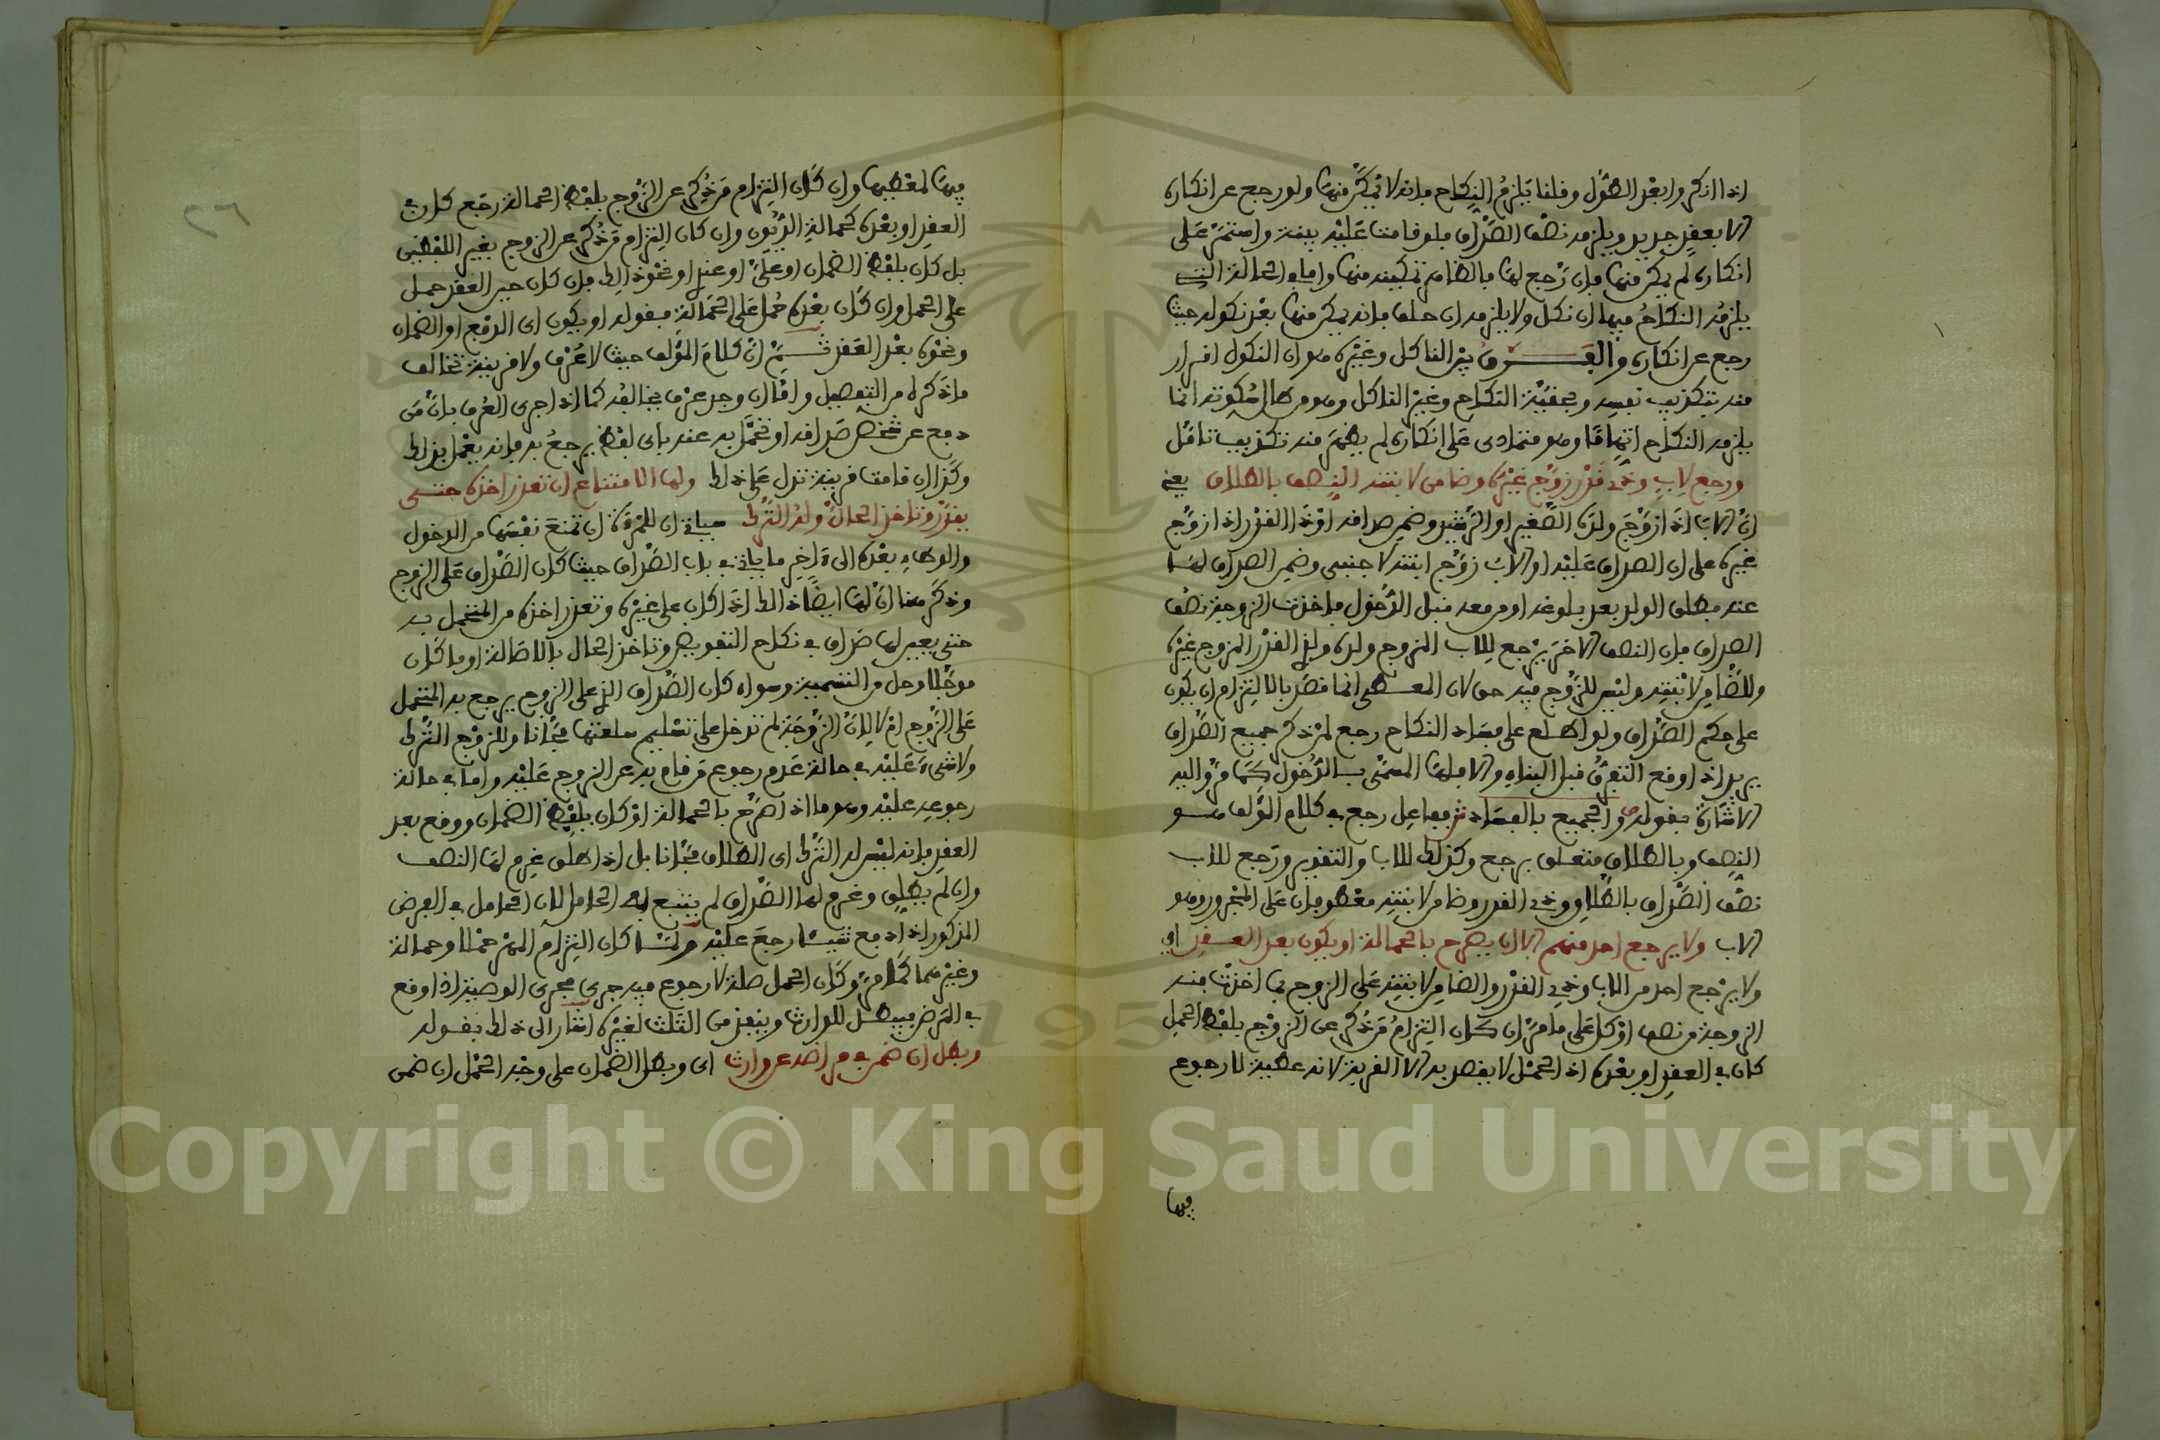 اذا انكروا بعد الطول وقلنا يلزم النكاح فانه لا يمكن منها ولو رجع عن انكاره
الا بعقد جديد ويلزمه نصف الصداق فلو قامت عليه بينة واستمر على
انكاره لم يمكن منها فان رجع لها فالظاهر تمكينه منها واما في الحالة التي
يلزمه النكاح فيها ان نكل ولا يلزمه ان حلف فانه يمكن منها بعد نكوله حيث
رجع عن انكاره والفرق بين الناكل وغيره هو ان النكول اقرار
منه بتكذيب نفسه وبحقية النكاح وغير الناكل وهو من طال سكوته انما
يلزمه النكاح اتهاما وهو متمادى على انكاره لم يظهر منه تكذيب تامل
ورجع لاب وذى قدر زوج غيره وضامن لابنته النصف بالطلاق يعني
ان الاب اذا زوج ولده الصغير او الرشيد وضمن صداقه او ذا القدر اذا زوج
غيره على ان الصداق عليه او الاب زوج ابنته لاجنبى وضمن الصداق لها
عنه فطلق الولد بعد بلوغه او من معه قبل الدخول فاخذت الزوجة نصف
الصداق فان النصف الاخر يرجع للاب المزوج ولده ولذى القدر المزوج غيره
وللضامن لابنته وليس للزوج فيه حق لان المعطى انما قصد بالالتزام ان يكون
على حكم الصداق ولو اطلع على فساد النكاح رجع لمن ذكر جميع الصداق
يريد اذا وقع التفرق قبل البناء والا فلها المسمى بالدخول كما مر واليه
الاشارة بقوله ص والجميع بالفساد ش ففاعل رجع في كلام المؤلف هو
النصف وبالطلاق متعلق برجع وكذلك للاب والتقدير ورجع للاب
نصف الصداق بالطلاق وذى القدر وضامن لابنته معطوفان على المجرور وهو
الاب ولا يرجع احد منهم الا ان يصرح بالحمالة او يكون بعد العقد اى
ولا يرجع احد من الاب وذى القدر والضامن لابنته على الزوج بما اخذت منه
الزوجة من نصف او كل على ما مر ان كان التزام من ذكر عن الزوج بلفظ الحمل
كان في العقد او بعده اذ الحمل لا يقصد به الا القربة لانه عطية لا رجوع
فيها
فيها لمعطيها وان كان التزام من ذكر عن الزوج بلفظ الحمالة رجع كان في
العقد او بعده كحمالة الديون وان كان التزام من ذكر عن الزوج بغير اللفظين
بل كان بلفظ الضمان او علي او عندى او نحو ذلك فان كان حين العقد حمل
على الحمل وان كان بعده حمل على الحمالة فقوله او يكون اى الدفع او الضمان
ونحوه بعد العقد ثم ان كلام المؤلف حيث لا عرف ولا قرينة تخالف
ما ذكره من التفصيل واما ان وجد عرف يخالفه كما اذا جرى العرف بان من
دفع عن شخص صداقه او تحمل به عنه باى لفظ يرجع به فانه يعمل بذلك
وكذا ان قامت قرينة تدل على ذلك ولها الامتناع ان تعذر اخذه حتى
يقرر وتاخذ الحال وله الترك سياتى ان للمرأة ان تمنع نفسها من الدخول
والوطء بعده الى آخر ما ياتى في باب الصداق حيث كان الصداق على الزوج
وذكر هنا ان لها ايضا ذلك اذا كان على غيره وتعذر اخذه من المتحمل به
حتى يعين لها صداق في نكاح التفويض وتاخذ الحال بالاصالة او ما كان
مؤجلا وحل من التسمية وسواء كان الصداق الذى على الزوج يرجع به المتحمل
على الزوج ام لا لان الزوجة لم تدخل على تسليم سلعتها مجانا وللزوج الترك
ولا شىء عليه في حالة عدم رجوع من قام به عن الزوج عليه واما في حالة
رجوعه عليه وهو ما اذا صرح بالحمالة او كان بلفظ الضمان ووقع بعد
العقد فانه ليس له الترك اى الطلاق مجانا بل اذا طلق غرم لها النصف
وان لم يطلق وغرم لها الصداق لم يتبع به الحامل لان الحامل في الفرض
المذكور اذا دفع شيئا رجع عليه ولما كان التزام المهر حملا وحمالة
وغيرهما كما مر وكان الحمل صلة لا رجوع فيه جرى مجرى الوصية اذا وقع
في المرض فيبطل للوارث وينفذ من الثلث لغيره اشار الى ذلك بقوله
وبطل ان ضمن في مرضه عن وارث اى وبطل الضمان على وجه الحمل ان ضمن